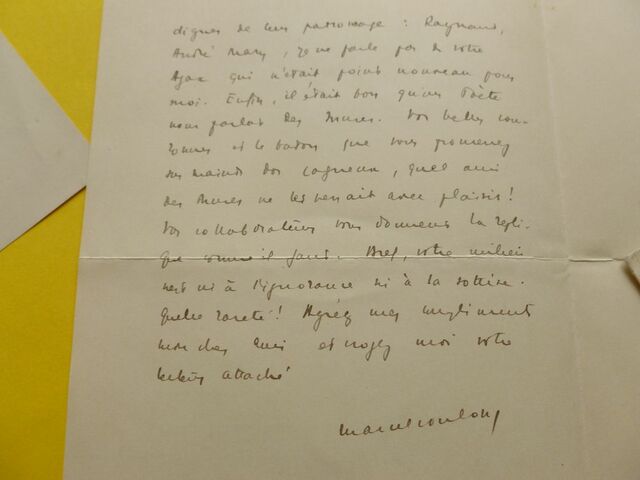 dignes de leur patronage : Raynaud,
André Mary, je ne parle pas de votre
Ajax qui n'était point nouveau pour
moi. Enfin, il était bon qu'un Poète
nous parlât des Muses. Vos belles cou-
ronnes et le baton que vous promenez
sur maints dos cagneux, quel ami
des Muses ne les verrait avec plaisir !
Vos collaborateurs vous donnent la répli-
que comme il faut. Bref, votre milieu
n'est ni à l'ignorance ni à la sottise.
Quelle rareté ! Agréez mes compliments
mon cher ami et croyez moi votre
attaché
Marcel Coulon